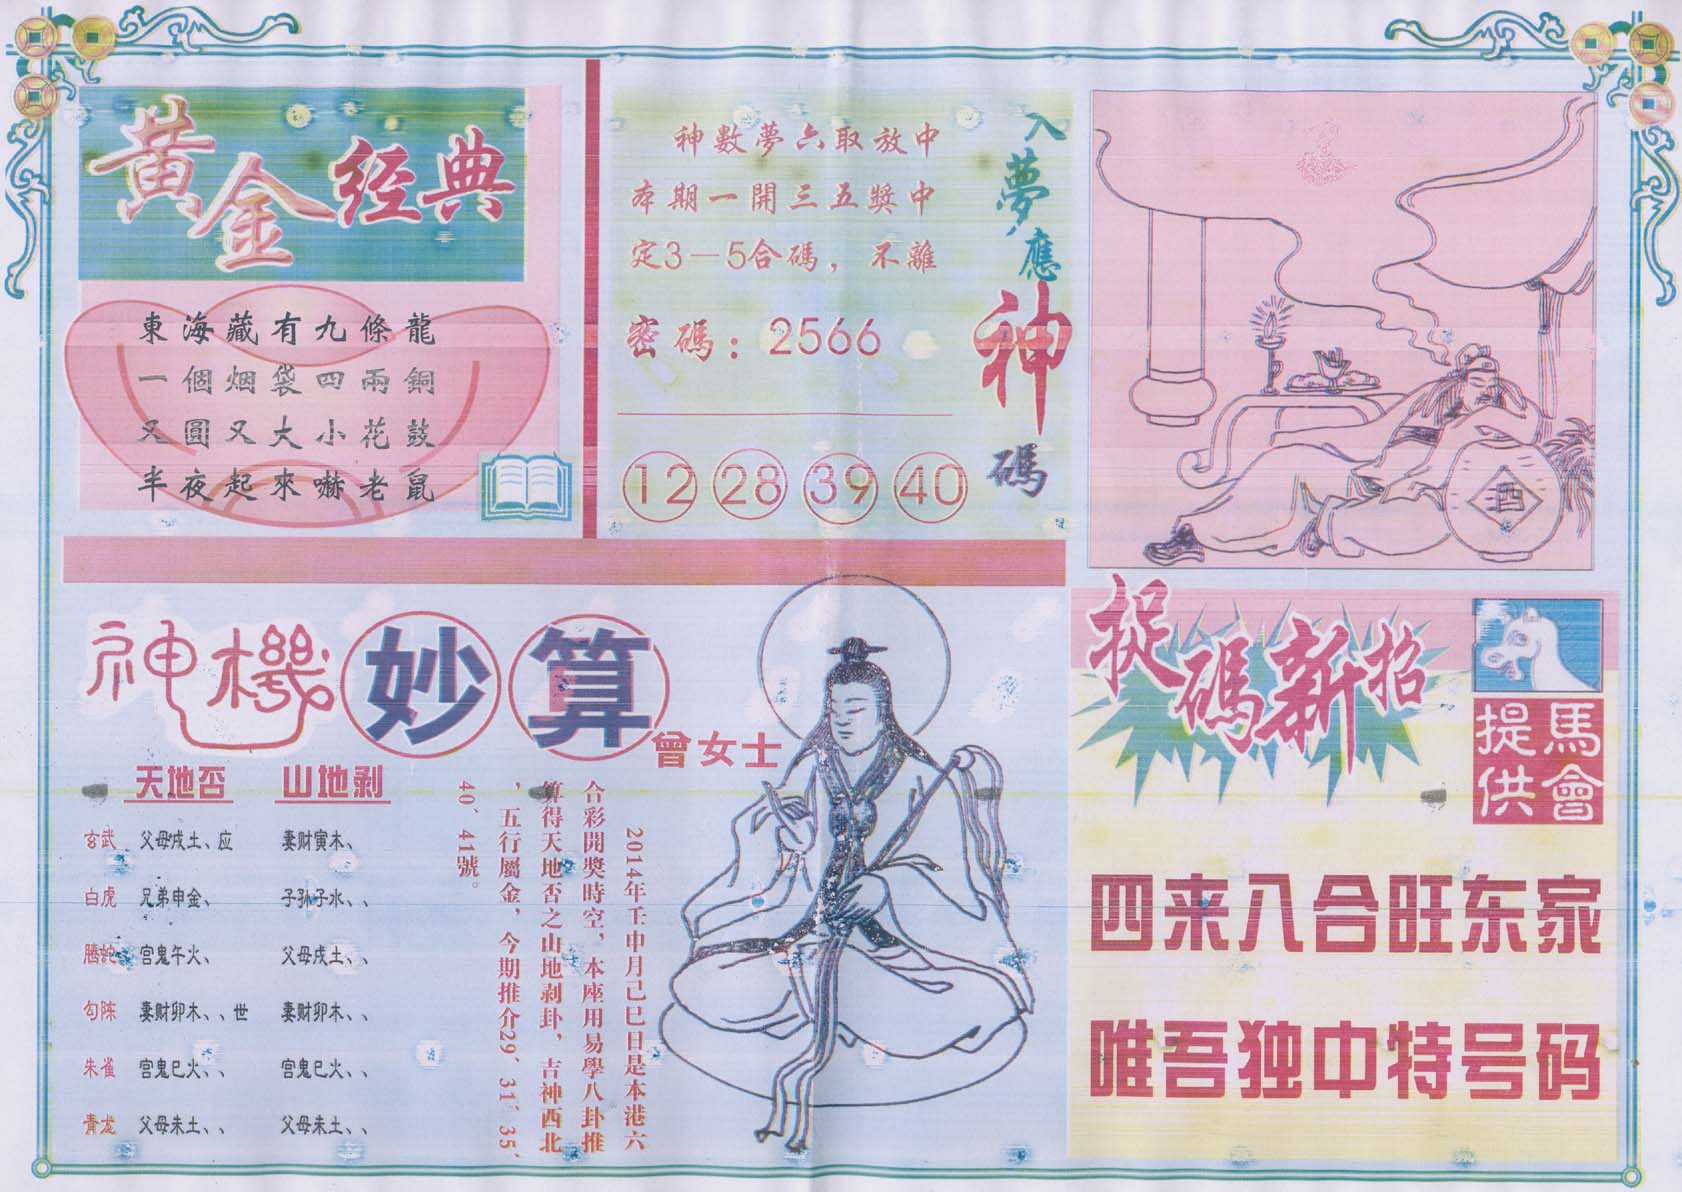 黄金经典
東海藏有九條龍
一個烟袋四兩銅
又圓又大小花鼓
半夜起來嚇老鼠
入夢應神碼
神數夢六取放中
本期一開三五獎中
定3－5合碼，不離
密碼：2566
12 28 39 40
酒
神機妙算
曾女士
天地否 山地剥
玄武 父母戌土、应 妻财寅木、
白虎 兄弟申金、 子孙子水、、
腾蛇 宫鬼午火、 父母戌土、、
勾陈 妻财卯木、、世 妻财卯木、、
朱雀 宫鬼巳火、、 宫鬼巳火、、
青龙 父母未土、、 父母未土、、
2014年壬申月己巳日是本港六
合彩開獎時空，本座用易學八卦推
算得天地否之山地剥卦，吉神西北
，五行屬金，今期推介29、31、35、
40、41號。
捉碼新招
馬會提供
四来八合旺东家
唯吾独中特号码